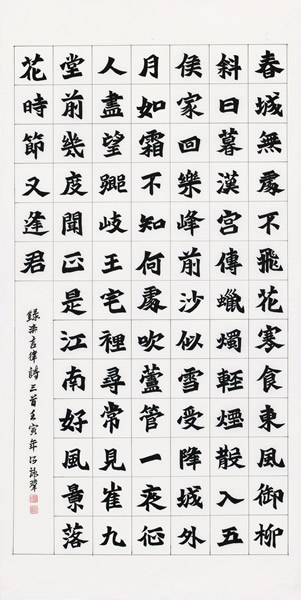 春城無處不飛花寒食東風御柳
斜日暮漢宮傳蠟燭輕煙散入五
侯家回樂峰前沙似雪受降城外
月如霜不知何處吹蘆管一夜征
人盡望鄉岐王宅裡尋常見崔九
堂前幾度聞正是江南好風景落
花時節又逢君
錄柒言律詩三首壬寅年